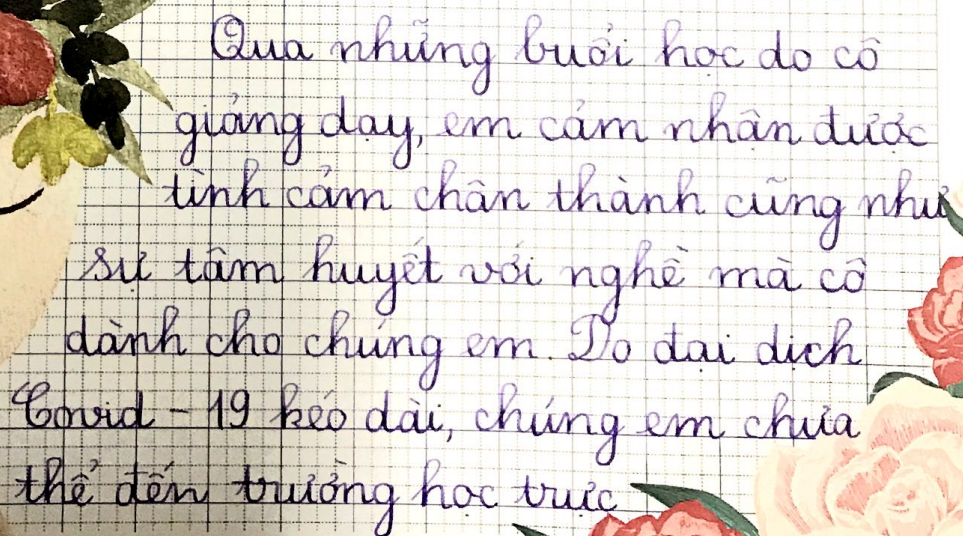 Qua những buổi học do cô
giảng dạy, em cảm nhận được
tình cảm chân thành cũng như
sự tâm huyết với nghề mà cô
dành cho chúng em. Do đại dịch
Covid - 19 kéo dài, chúng em chưa
thể đến trường học trực